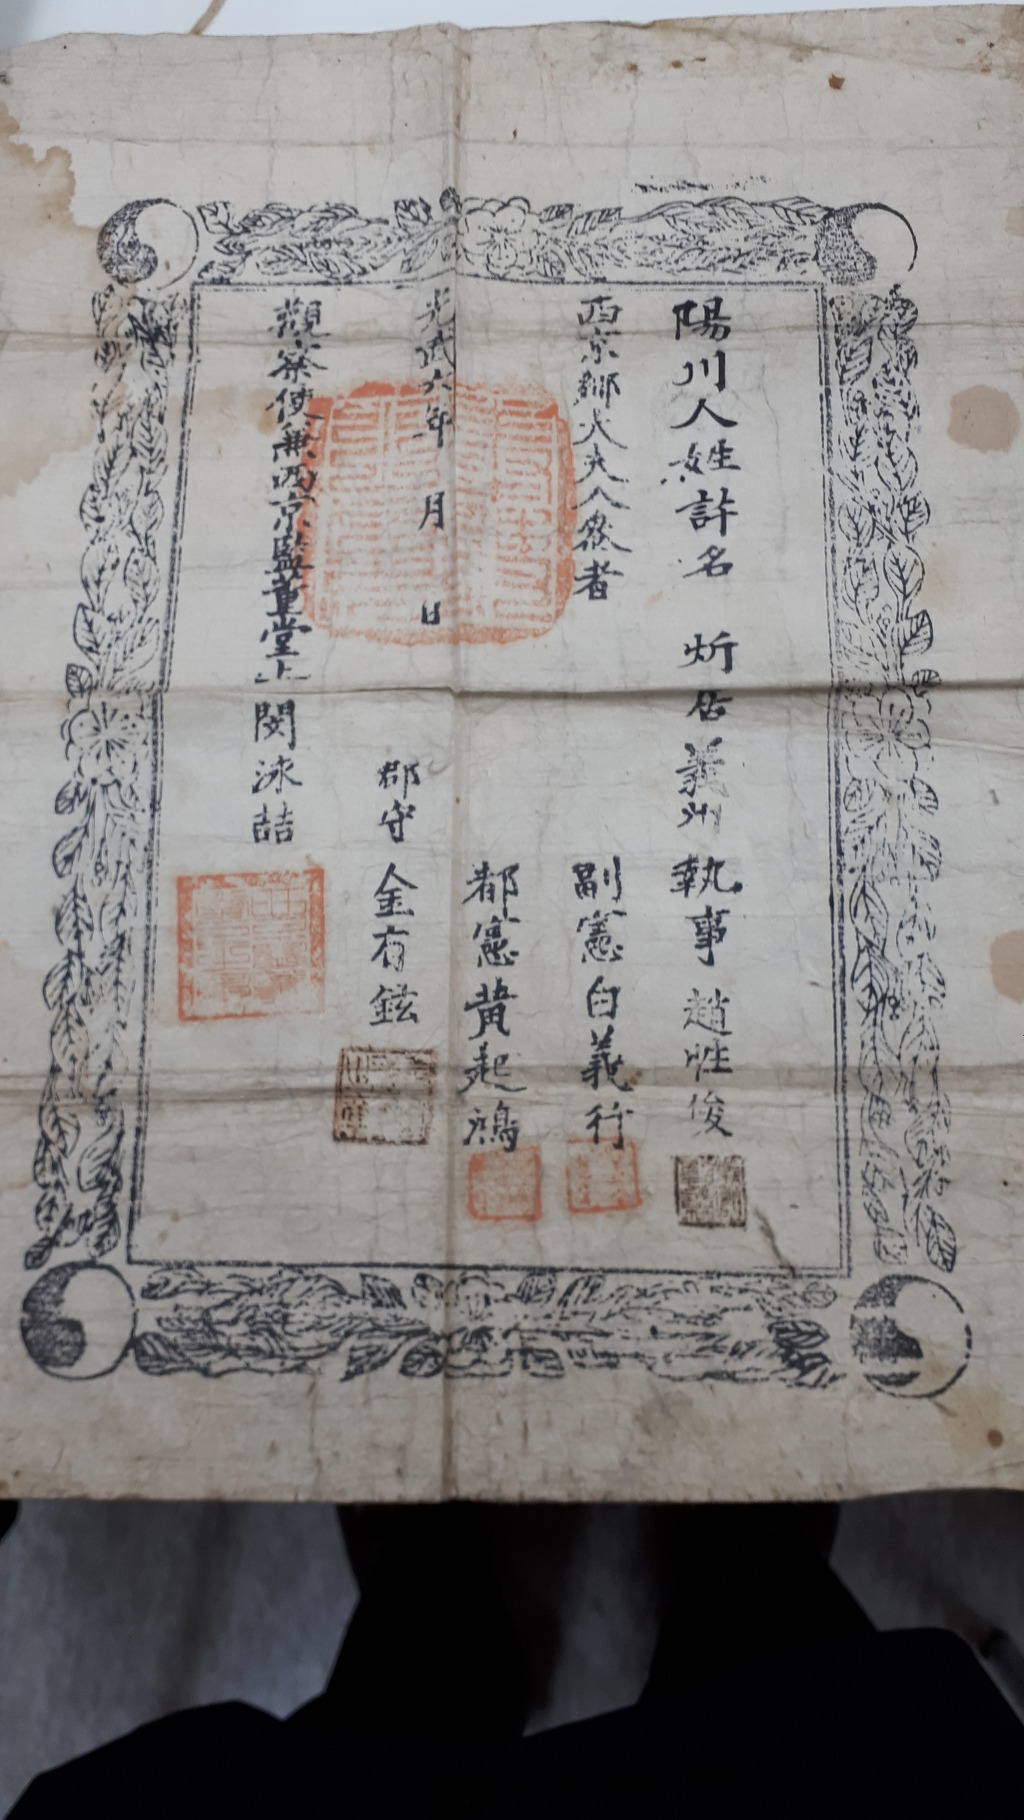 陽川人姓許名 炘居義州 執事 趙性俊
西京鄕大夫入參者 副憲 白義行
都憲 黃起鴻
光武六年 月 日 郡守 金有鉉
觀察使兼西京監董堂上 閔泳喆